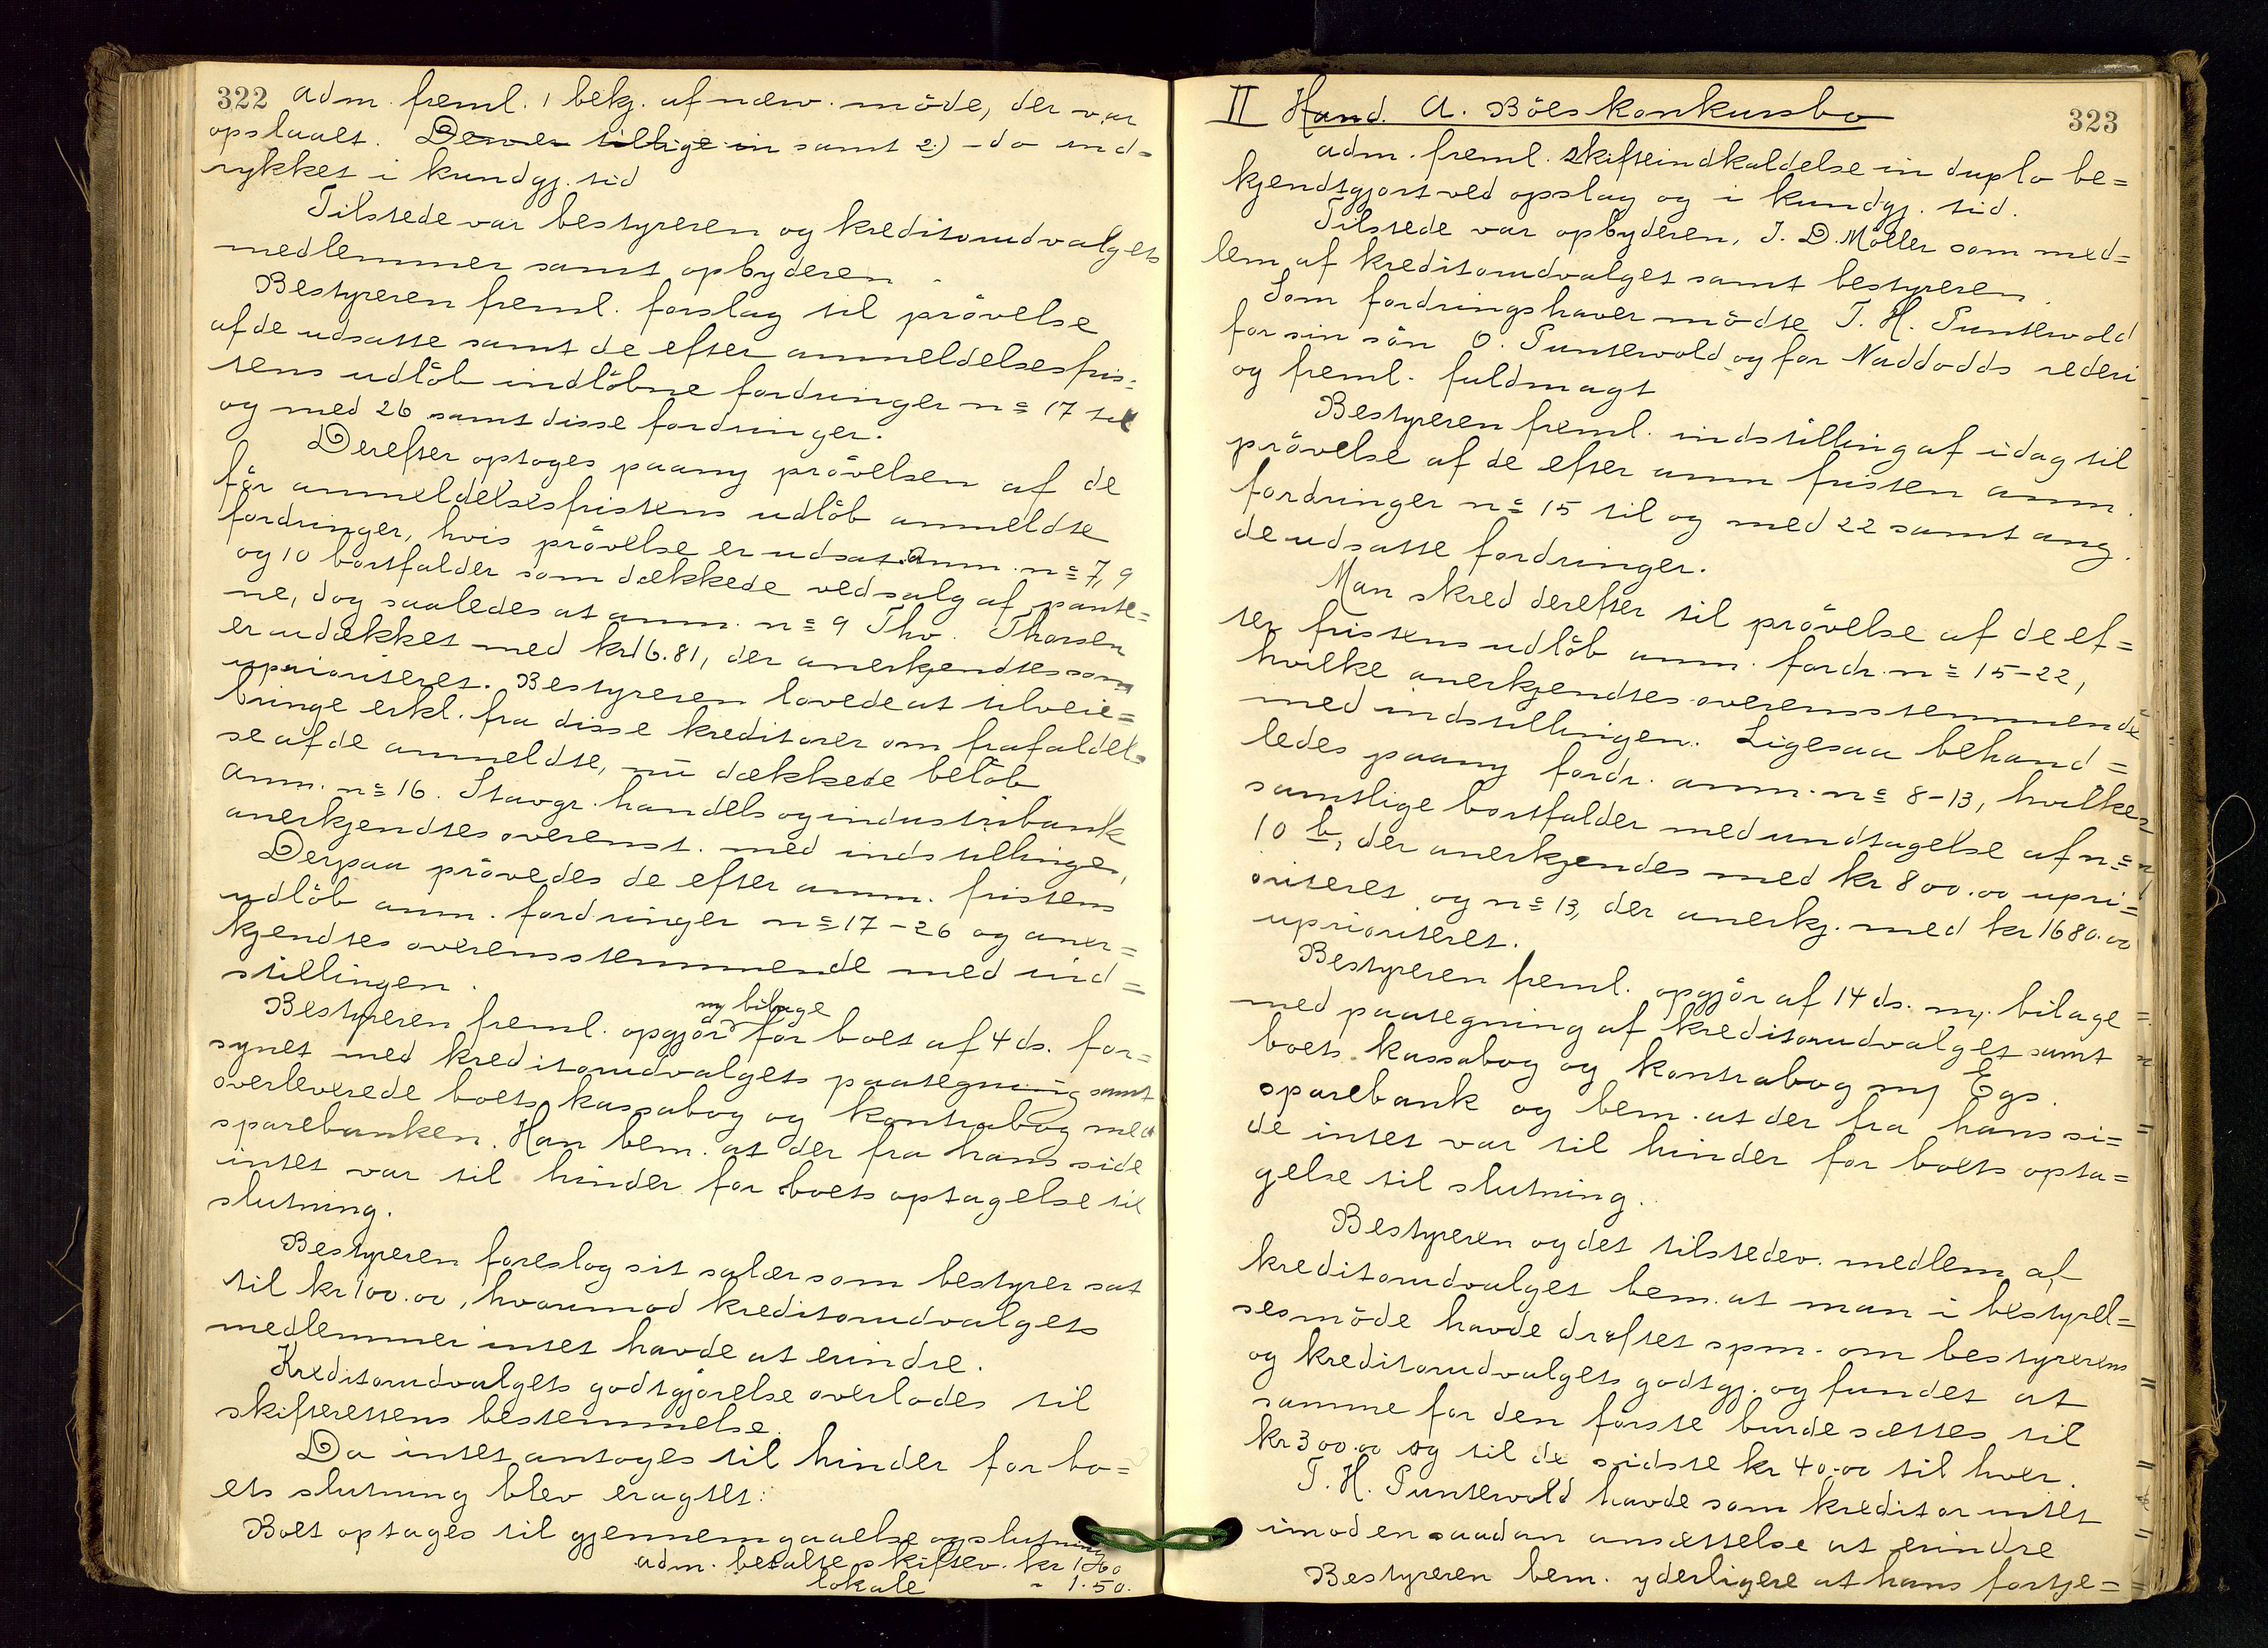 322 adm. freml. 1 bekj. af næv. möde, der var
opslaaet. Denne tillige in samt 2) -do ind=
rykket i kundgj. tid
Tilstede var bestyreren og kreditorudvalgets
medlemmer samt opbyderen.
Bestyreren freml. forslag til prövelse
af de udsatte samt de efter anmeldelsesfris=
tens udlöb indlöbne fordringer nº 17 til
og med 26 samt disse fordringer.
Derefter optoges paany prövelsen af de
för anmeldelsesfristens udlöb anmeldte
fordringer, hvis prövelse er udsat. Anm. nº 7, 9
og 10 bortfalder som dækkede ved salg af pante=
ne, dog saaledes at anm. nº 9 Thv. Thorsen
er udækket med kr 16.81, der anerkjendtes som
uprioriteret. Bestyreren lovede at tilveie=
bringe erkl. fra disse kreditorer om frafaldel=
se af de anmeldte, nu dækkede belöb
Anm. nº 16. Stavgr. handels og industribank
anerkjendtes overenst. med indstillingen,
Derpaa prövedes de efter anm. fristens
udlöb anm. fordringer nº 17-26 og aner=
kjendtes overensstemmende med ind=
stillingen.
m/ bilage
Bestyreren freml. opgjör for boet af 4 ds. for=
synet med kreditorudvalgets paategning samt
overleverede boets kassabog og kontrabog med
sparebanken. Han bem. at der fra hans side
intet var til hinder for boets optagelse til
slutning.
Bestyreren foreslog sit salær som bestyrer sat
til kr 100.00, hvorimod kreditorudvalgets
medlemmer intet havde at erindre.
Kreditorudvalgets godtgjörelse overlodes til
skifterettens bestemmelse.
Da intet antoges til hinder for bo=
ets slutning blev eragtet:
Boet optages til gjennemgaaelse og slutning
adm. betalte skiftev. kr 1.60
lokale " 1.50.
II Hand. A. Böes konkursbo 323
adm. freml. skifteindkaldelse in duplo be=
kjendtgjort ved opslag og i kundgj. tid.
Tilstede var opbyderen, J. D. Möller som med=
lem af kreditorudvalget samt bestyreren.
Som fordringshaver mödte T. H. Puntervold
for sin sön O. Puntervold og for Naddodds rederi
og freml. fuldmagt
Bestyreren freml. indstilling af idag til
prövelse af de efter anm fristen anm.
fordringer nº 15 til og med 22 samt ang.
de udsatte fordringer.
Man skred derefter til prövelse af de ef=
ter fristens udlöb anm. fordr. nº 15-22,
hvilke anerkjendtes overensstemmende
med indstillingen. Ligesaa behand=
ledes paany fordr. anm. nº 8-13, hvilke
samtlige bortfalder med undtagelse af nº
10 b, der anerkjendes med kr 800.00 upri=
oriteret og nº 13, der anerkj. med kr 1680.00
uprioriteret.
Bestyreren freml. opgjör af 14 ds. m/ bilage
med paategning af kreditorudvalget samt
boets kassabog og kontrabog m/ Egs.
sparebank og bem. at der fra hans si=
de intet var til hinder for boets opta=
gelse til slutning.
Bestyreren og det tilstedev. medlem af
kreditorudvalget bem. at man i bestyrel=
sesmöde havde dröftet spm. om bestyrerens
og kreditorudvalgets godtgj. og fundet at
samme for den förste burde sættes til
kr 300.00 og til de sidste kr 40.00 til hver.
T. H. Puntervold havde som kreditor intet
imod en saadan ansættelse at erindre
Bestyreren bem. yderligere at hans fortje=